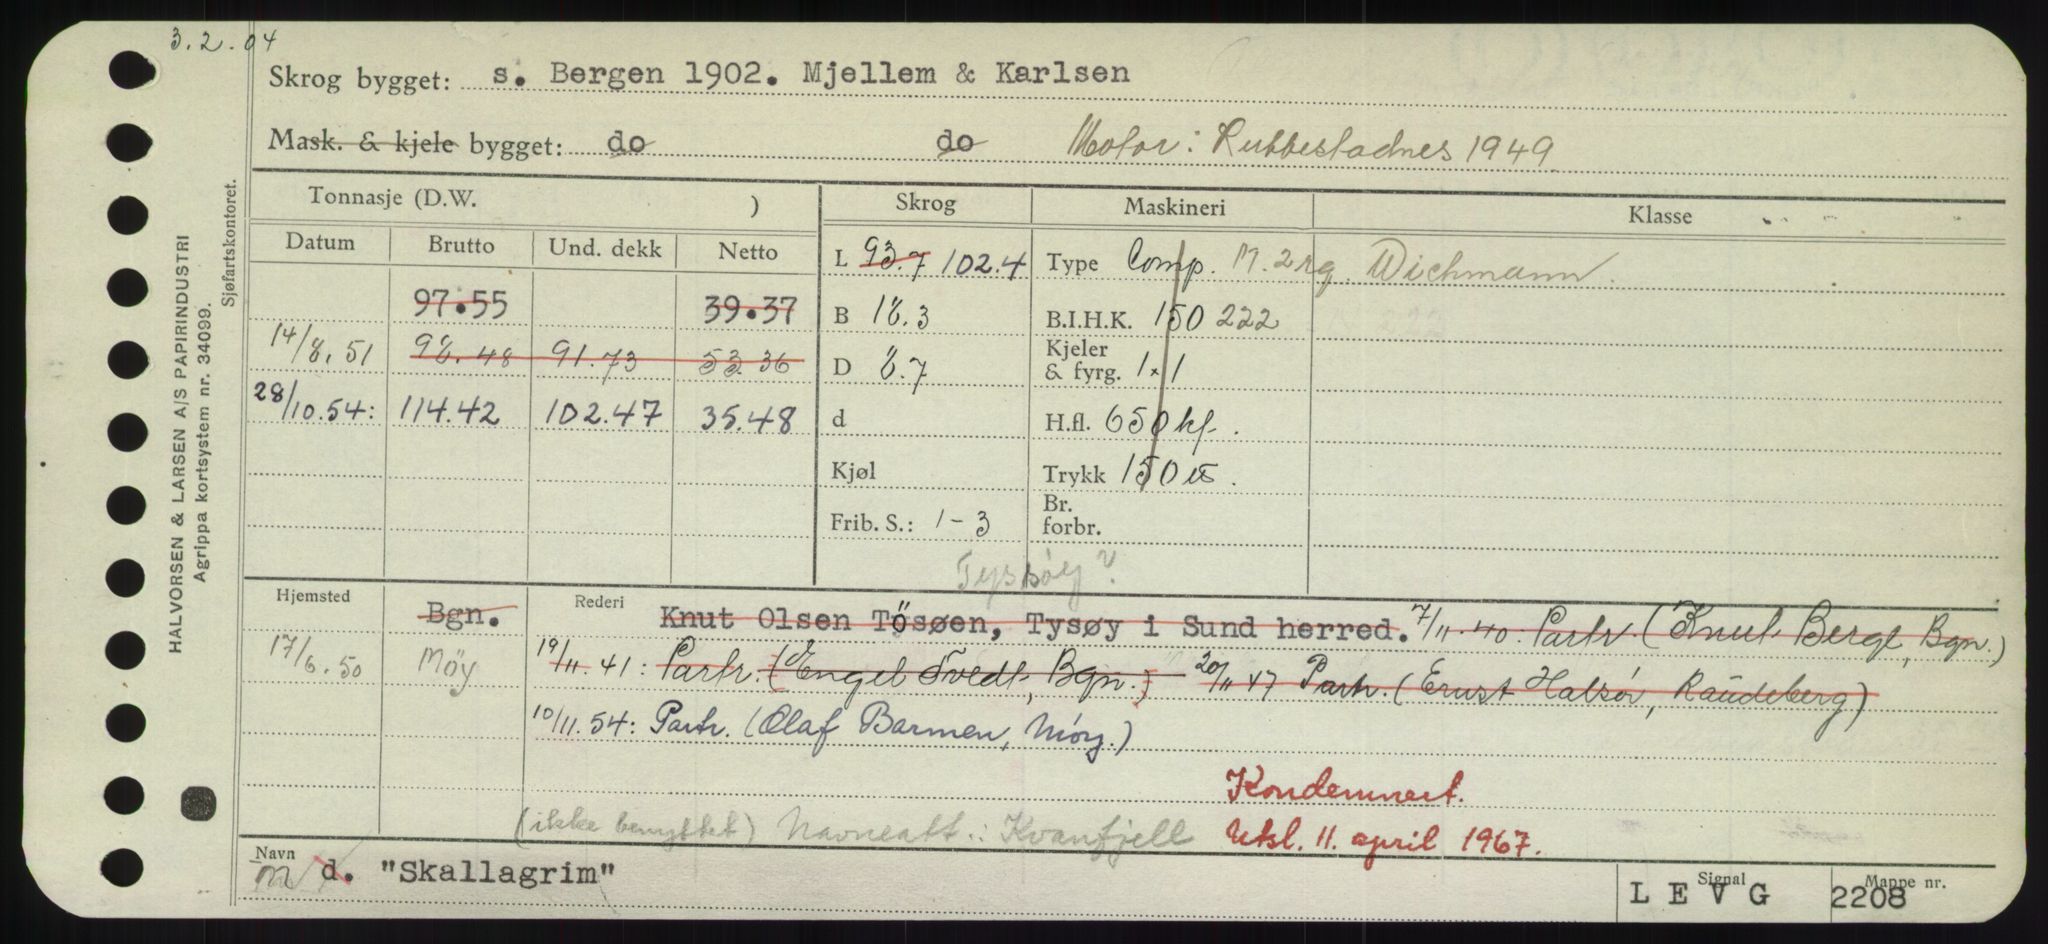 3.2.04
Skrog bygget: s. Bergen 1902. Mjellem & Karlsen
Mask. & kjele bygget: do do Motor: Rubbestadnes 1949
Tonnasje (D.W. ) Skrog Maskineri Klasse
Datum Brutto Und. dekk Netto
L 93.7 102.4 Type Comp. M. 2 Wichmann
97.55 39.37 B 18.3 B.I.H.K. 150 222
14/8.51 98.48 91.73 53.36 D 8.7 Kjeler & fyrg. 1 x 1
28/10.54: 114.42 102.47 35.48 d H.fl. 650 kf.
Kjøl Trykk 150 lb.
Frib. S.: 1-3 Br. forbr.
Tyssøy?
Hjemsted Bgn. Rederi Knut Olsen Tösøen, Tysøy i Sund herred. 7/11.40: Partr. (Knut Berge, Bgn.)
17/6.50 Møy 19/11.41: Partr. (Engel Tvedt, Bgn.) 20/11 47 Partr. (Ernst Halsør, Raudeberg)
10/11.54: Partr. (Olaf Barmen, Møy.)
Kondemnert.
(ikke benyttet) Navneatt.: Kvanfjell Utsl. 11. april 1967.
Navn M d. "Skallagrim" Signal LEVG Mappe nr. 2208
HALVORSEN & LARSEN A/S PAPIRINDUSTRI
Agrippa kortsystem nr. 34099.
Sjøfartskontoret.